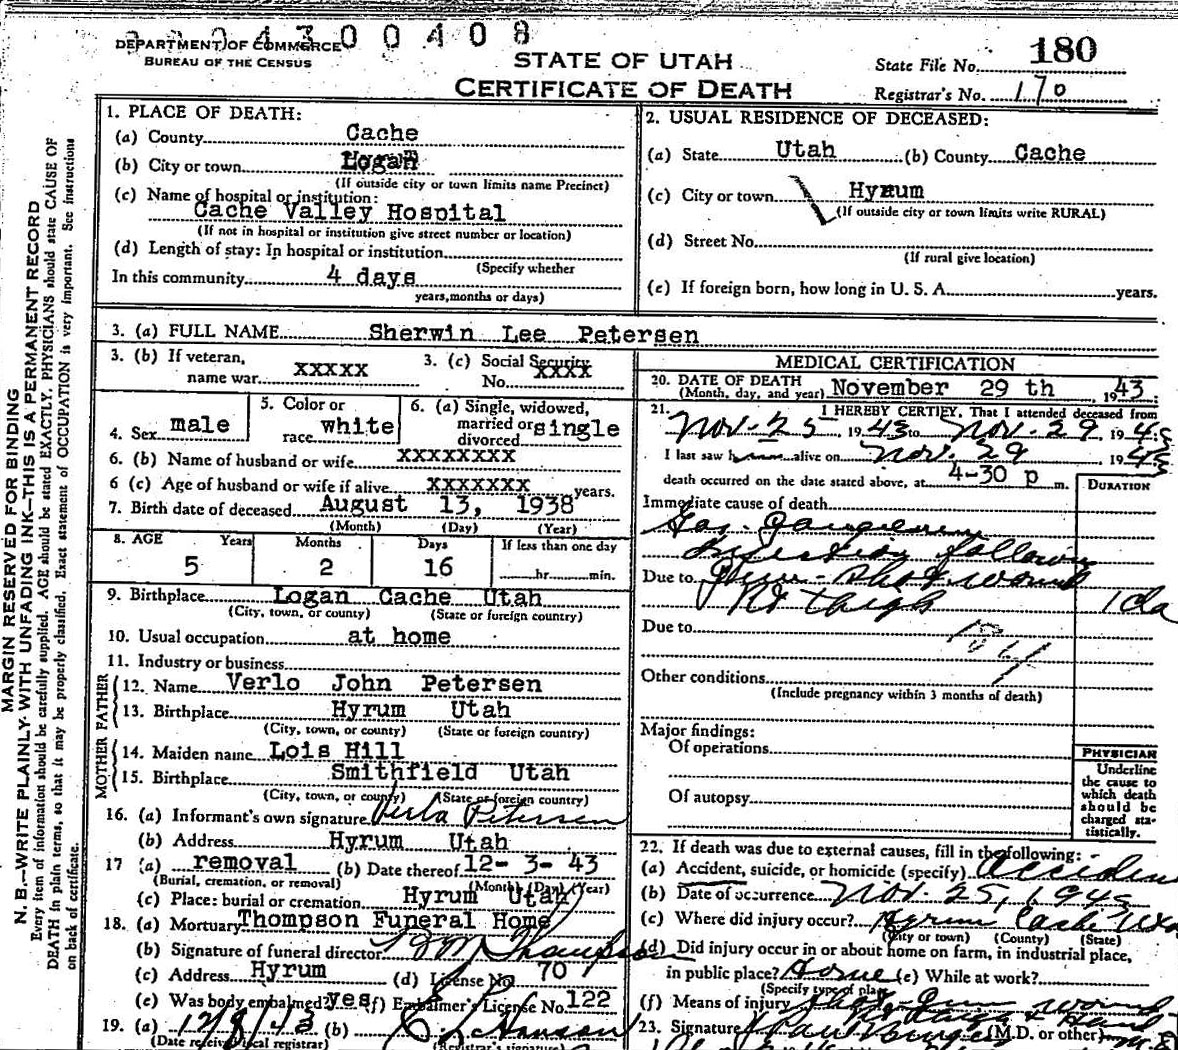 0 0 4 3 0 0 4 0 8
DEPARTMENT OF COMMERCE
BUREAU OF THE CENSUS
STATE OF UTAH
CERTIFICATE OF DEATH
State File No. 180
Registrar's No. 170
MARGIN RESERVED FOR BINDING
N. B.—WRITE PLAINLY WITH UNFADING INK—THIS IS A PERMANENT RECORD
Every item of information should be carefully supplied. AGE should be stated EXACTLY. PHYSICIANS should state CAUSE OF
DEATH in plain terms, so that it may be properly classified. Exact statement of OCCUPATION is very important. See instructions
on back of certificate.
1. PLACE OF DEATH:
(a) County Cache
(b) City or town Logan
(If outside city or town limits name Precinct)
(c) Name of hospital or institution:
Cache Valley Hospital
(If not in hospital or institution give street number or location)
(d) Length of stay: In hospital or institution
(Specify whether
In this community 4 days
years, months or days)
2. USUAL RESIDENCE OF DECEASED:
(a) State Utah (b) County Cache
(c) City or town Hyrum
(If outside city or town limits write RURAL)
(d) Street No.
(If rural give location)
(e) If foreign born, how long in U. S. A. years.
3. (a) FULL NAME Sherwin Lee Petersen
3. (b) If veteran,
name war xxxxx
3. (c) Social Security
No. xxxx
4. Sex male
5. Color or
race white
6. (a) Single, widowed,
married or
divorced single
6. (b) Name of husband or wife xxxxxxxx
6 (c) Age of husband or wife if alive xxxxxxx years.
7. Birth date of deceased August 13, 1938
(Month) (Day) (Year)
8. AGE Years Months Days If less than one day
5 2 16 hr. min.
9. Birthplace Logan Cache Utah
(City, town, or county) (State or foreign country)
10. Usual occupation at home
11. Industry or business
FATHER
12. Name Verlo John Petersen
13. Birthplace Hyrum Utah
(City, town, or county) (State or foreign country)
MOTHER
14. Maiden name Lois Hill
15. Birthplace Smithfield Utah
(City, town, or county) (State or foreign country)
16. (a) Informant's own signature Verlo Petersen
(b) Address Hyrum Utah
17 (a) removal (b) Date thereof 12- 3- 43
(Burial, cremation, or removal) (Month) (Day) (Year)
(c) Place: burial or cremation Hyrum Utah
18. (a) Mortuary Thompson Funeral Home
(b) Signature of funeral director Thompson
(c) Address Hyrum (d) License No 70
(e) Was body embalmed? yes (f) Embalmer's License No. 122
19. (a) 12/8/43 (b)
(Date received local registrar) (Registrar's signature)
MEDICAL CERTIFICATION
20. DATE OF DEATH
(Month, day, and year) November 29 th, 1943
21. I HEREBY CERTIFY, That I attended deceased from
Nov. 25, 1943 to Nov. 29, 1943
I last saw him alive on Nov. 29 1943
death occurred on the date stated above, at 4-30 p m.
DURATION
Immediate cause of death
Gas Gangrene
Infection following
Due to Gun-shot wound
Rt thigh 1 da
Due to
Other conditions
(Include pregnancy within 3 months of death)
Major findings:
Of operations
Of autopsy
PHYSICIAN
Underline
the cause to
which death
should be
charged sta-
tistically.
22. If death was due to external causes, fill in the following:
(a) Accident, suicide, or homicide (specify) Accident
(b) Date of occurrence Nov. 25, 1943
(c) Where did injury occur? Hyrum Cache Utah
(City or town) (County) (State)
(d) Did injury occur in or about home on farm, in industrial place,
in public place? Home (e) While at work?
(Specify type of place)
(f) Means of injury Shot-Gun wound
23. Signature (M.D. or other) M.D.